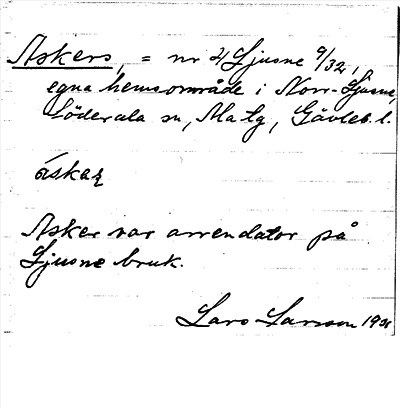 Askers, = nr 21 Ljusne 9/32,
egnahemsområde i Norr-Ljusne,
Söderala sn, Ala tg, Gävleb. l.
áskaʐ
Asker var arrendator på
Ljusne bruk.
Lars Larsson 19